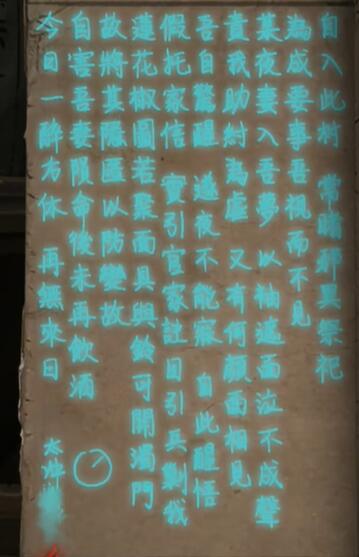 自入此村 常睹邪異祭祀
為成要事吾視而不見
某夜妻入吾夢 以袖遮面泣不成聲
責我助紂為虐 又有何顏面相見
吾自驚醒 遂夜不能寐 自此醒悟
假托家信 實引官家註目引兵剿我
蓮花椒圖若聚而具與飲可開濁門
故將其隱匿以防變故
自害吾妻隕命後未再飲酒
今日一醉方休 再無來日